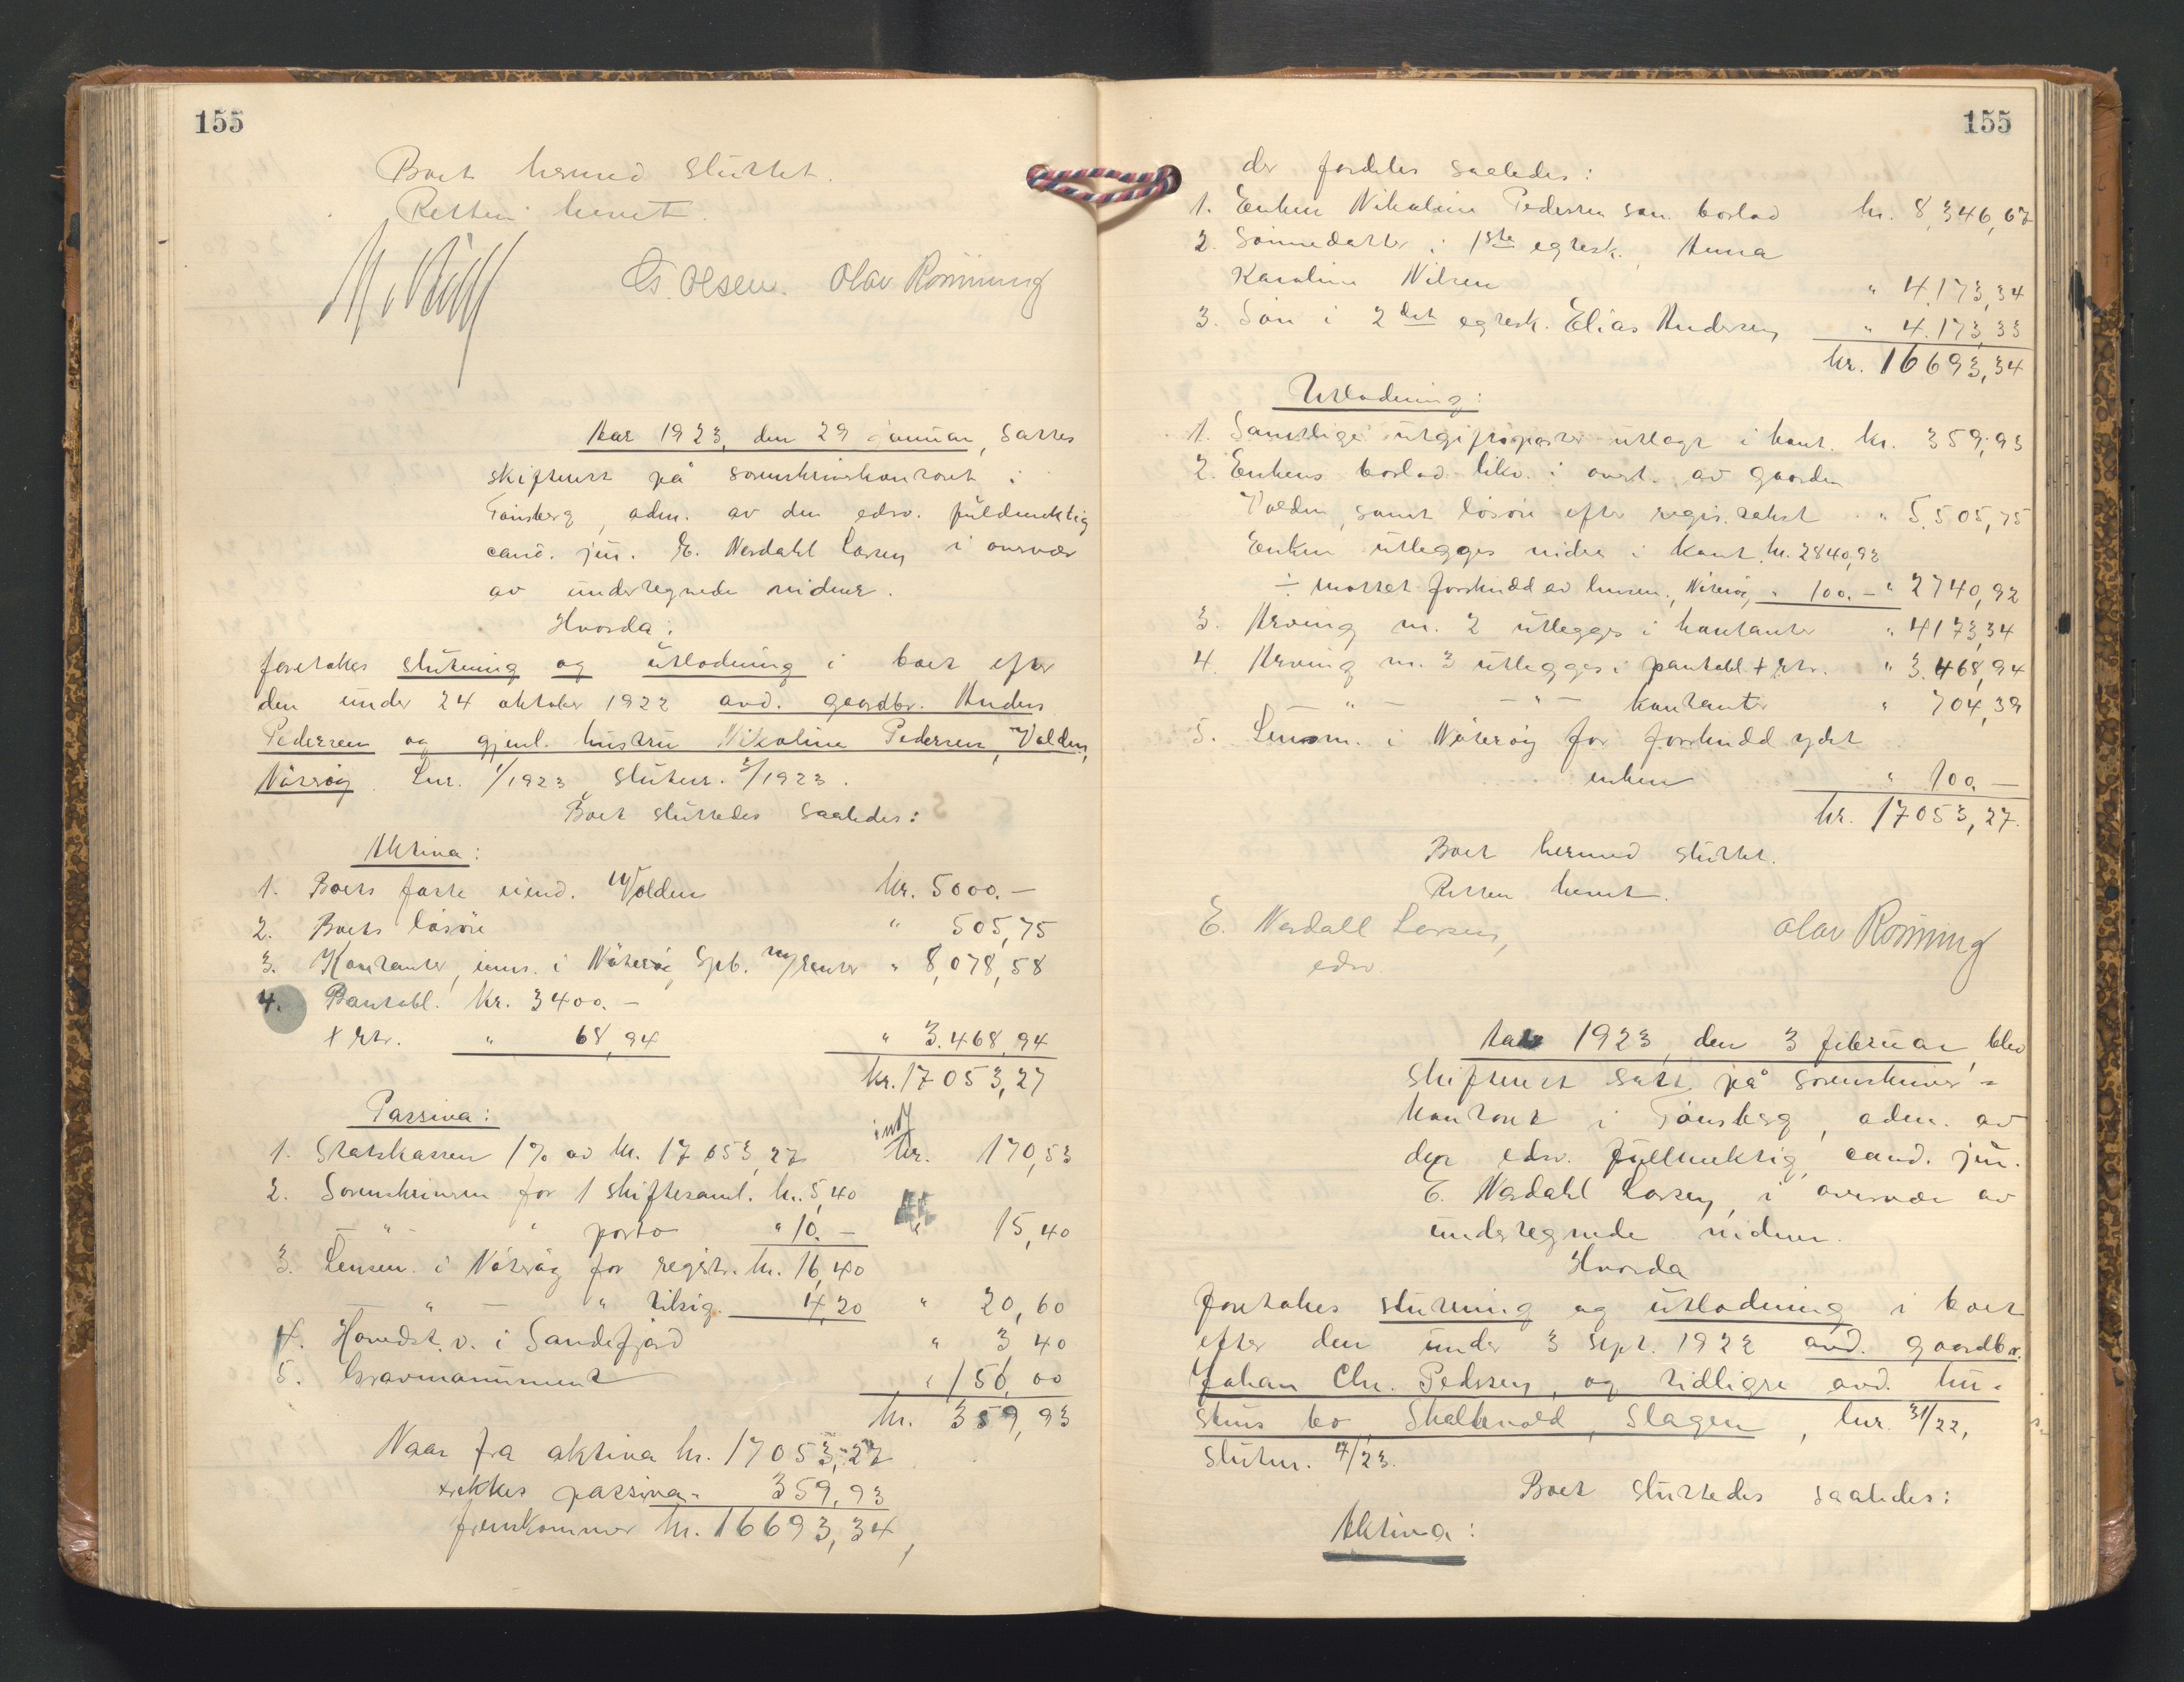 155
Boet hermed sluttet.
Retten hevet.
G. Olsen. Olav Rønning
Aar 1923, den 29 januar, sattes
skifterett på sorenskriverkontoret i
Tønsberg, adm. av den edsv. fuldmektig
cand. jur. E. Nerdahl Larsen i overvær
av undertegnede vidner.
Hvorda:
foretokes slutning og utlodning i boet efter
den under 24 oktober 1922 avd. gaardbr. Anders
Pedersen og gjenl. hustru Nikoline Pedersen, Volden,
Nøterøy. Lnr. 1/1923, slutnr. 5/1923.
Boet sluttedes saaledes:
Aktiva:
1. Boets faste eiend. Volden kr. 5000.—
2. Boets løsøre " 505,75
3. Kontanter, inns. i Nøterøy Spb. m/renter " 8,078,58
4. Pantobl. kr. 3400.—
+ rtr. " 68,94 " 3.468,94
kr. 17053,27
Passiva:
1. Statskassen 1% av kr. 17053,27 kr. 170,53
2. Sorenskriveren for 1 skiftesaml. kr. 5,40
— " — " porto " 10.— " 15,40
3. Lensm. i Nøterøy for registr. kr. 16,40
— " — " tilsig. 4,20 " 20,60
4. Hovedst. v. i Sandefjord " 3 40
5. Gravmonument " 150,00
kr. 359,93
Naar fra aktiva kr. 17053,27
trekkes passiva " 359,93
fremkommer kr. 16693,34,
155
der fordeles saaledes:
1. Enken Nikoline Pedersen som boslod kr. 8,346,67
2. Sønnedatter i 1ste egtesk., Anna
Karoline Nilsen " 4.173,34
3. Søn i 2det egtesk. Elias Andersen " 4.173,33
kr. 16693,34
Utlodning:
1. Samtlige utgiftsposter utlagt i kont. kr. 359,93
2. Enkens boslod likv. i overt. av gaarden
Volden, samt løsøre efter regis.takst " 5.505,75
Enken utlegges videre i kont. kr. 2840,92
÷ mottet forskudd av lensm., Nøterøy, " 100.— " 2740,92
3. Arving nr. 2 utlegges i kontanter " 4173,34
4. Arving nr. 3 utlegges i pantobl. + rtr. " 3.468,94
— " — — " — kontanter " 704,39
5. Lensm. i Nøterøy for forskudd ydet
enken " 100.—
kr. 17053,27.
Boet hermed sluttet.
Retten hevet.
E. Nerdahl Larsen, Olav Rønning
edsv.
Aar 1923, den 3 februar blev
skifterett satt på sorenskriver-
kontoret i Tønsberg, adm. av
den edsv. fullmektig, cand. jur.
E. Nerdahl Larsen, i overvær av
undertegnede vidner.
Hvorda
foretokes slutning og utlodning i boet
efter den under 3 sept. 1922 avd. gaardbr.
Johan Chr. Pedersen, og tidligere avd. hu-
strus bo, Skallevold, Slagen, lnr. 31/22,
slutnr. 7/23.
Boet sluttedes saaledes:
Aktiva: